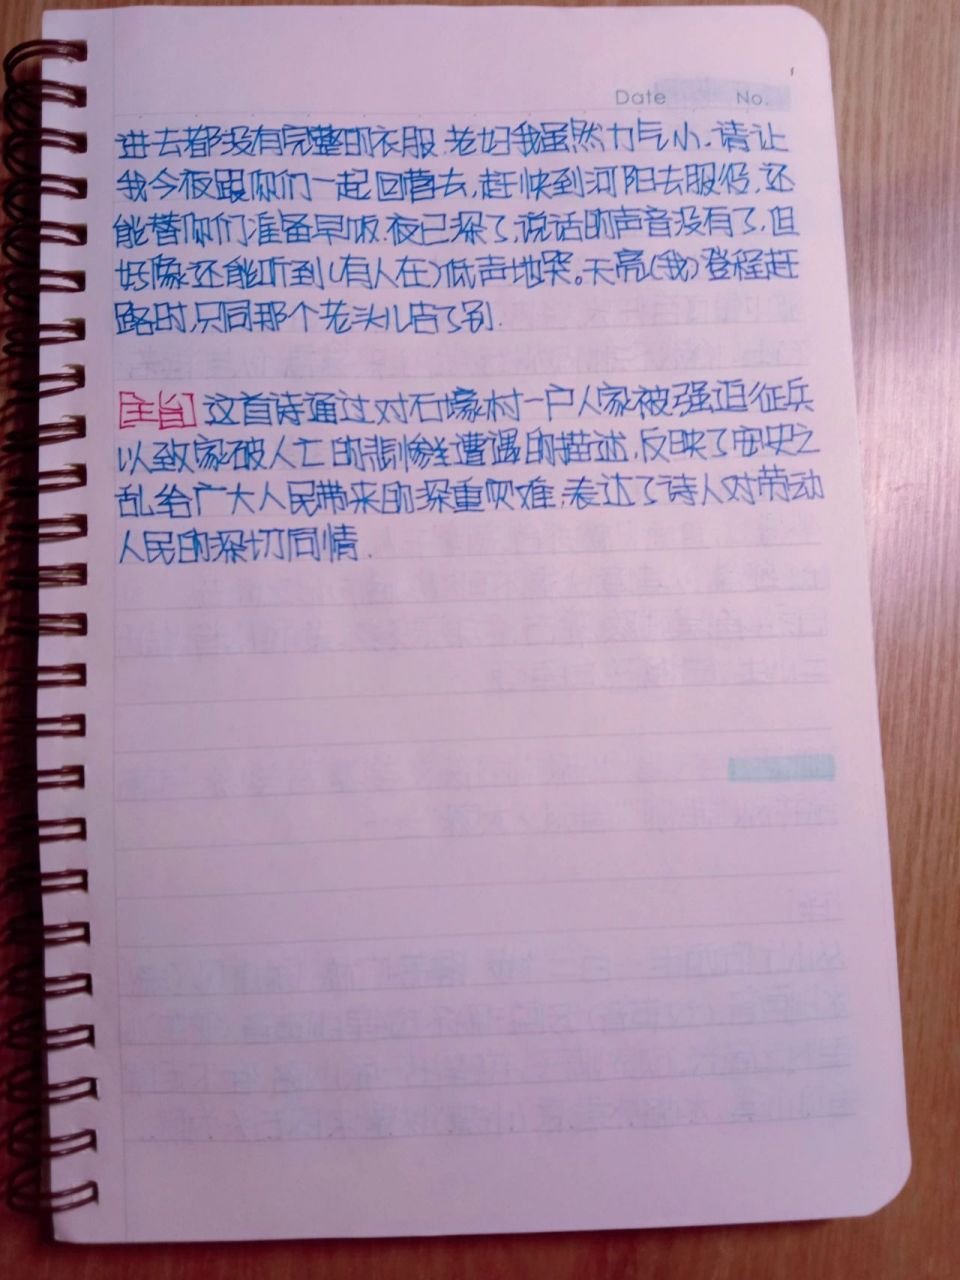 Date No.
进去都没有完整的衣服.老妇我虽然力气小.请让
我今夜跟你们一起回营去,赶快到河阳去服役.还
能替你们准备早饭.夜已深了,说话的声音没有了,但
好像还能听到(有人在)低声地哭。天亮(我)登程赶
路时,只同那个老头儿告了别.
[主旨]这首诗通过对石壕村一户人家被强迫征兵
以致家破人亡的悲惨遭遇的描述,反映了安史之
乱给广大人民带来的深重灾难,表达了诗人对劳动
人民的深切同情.